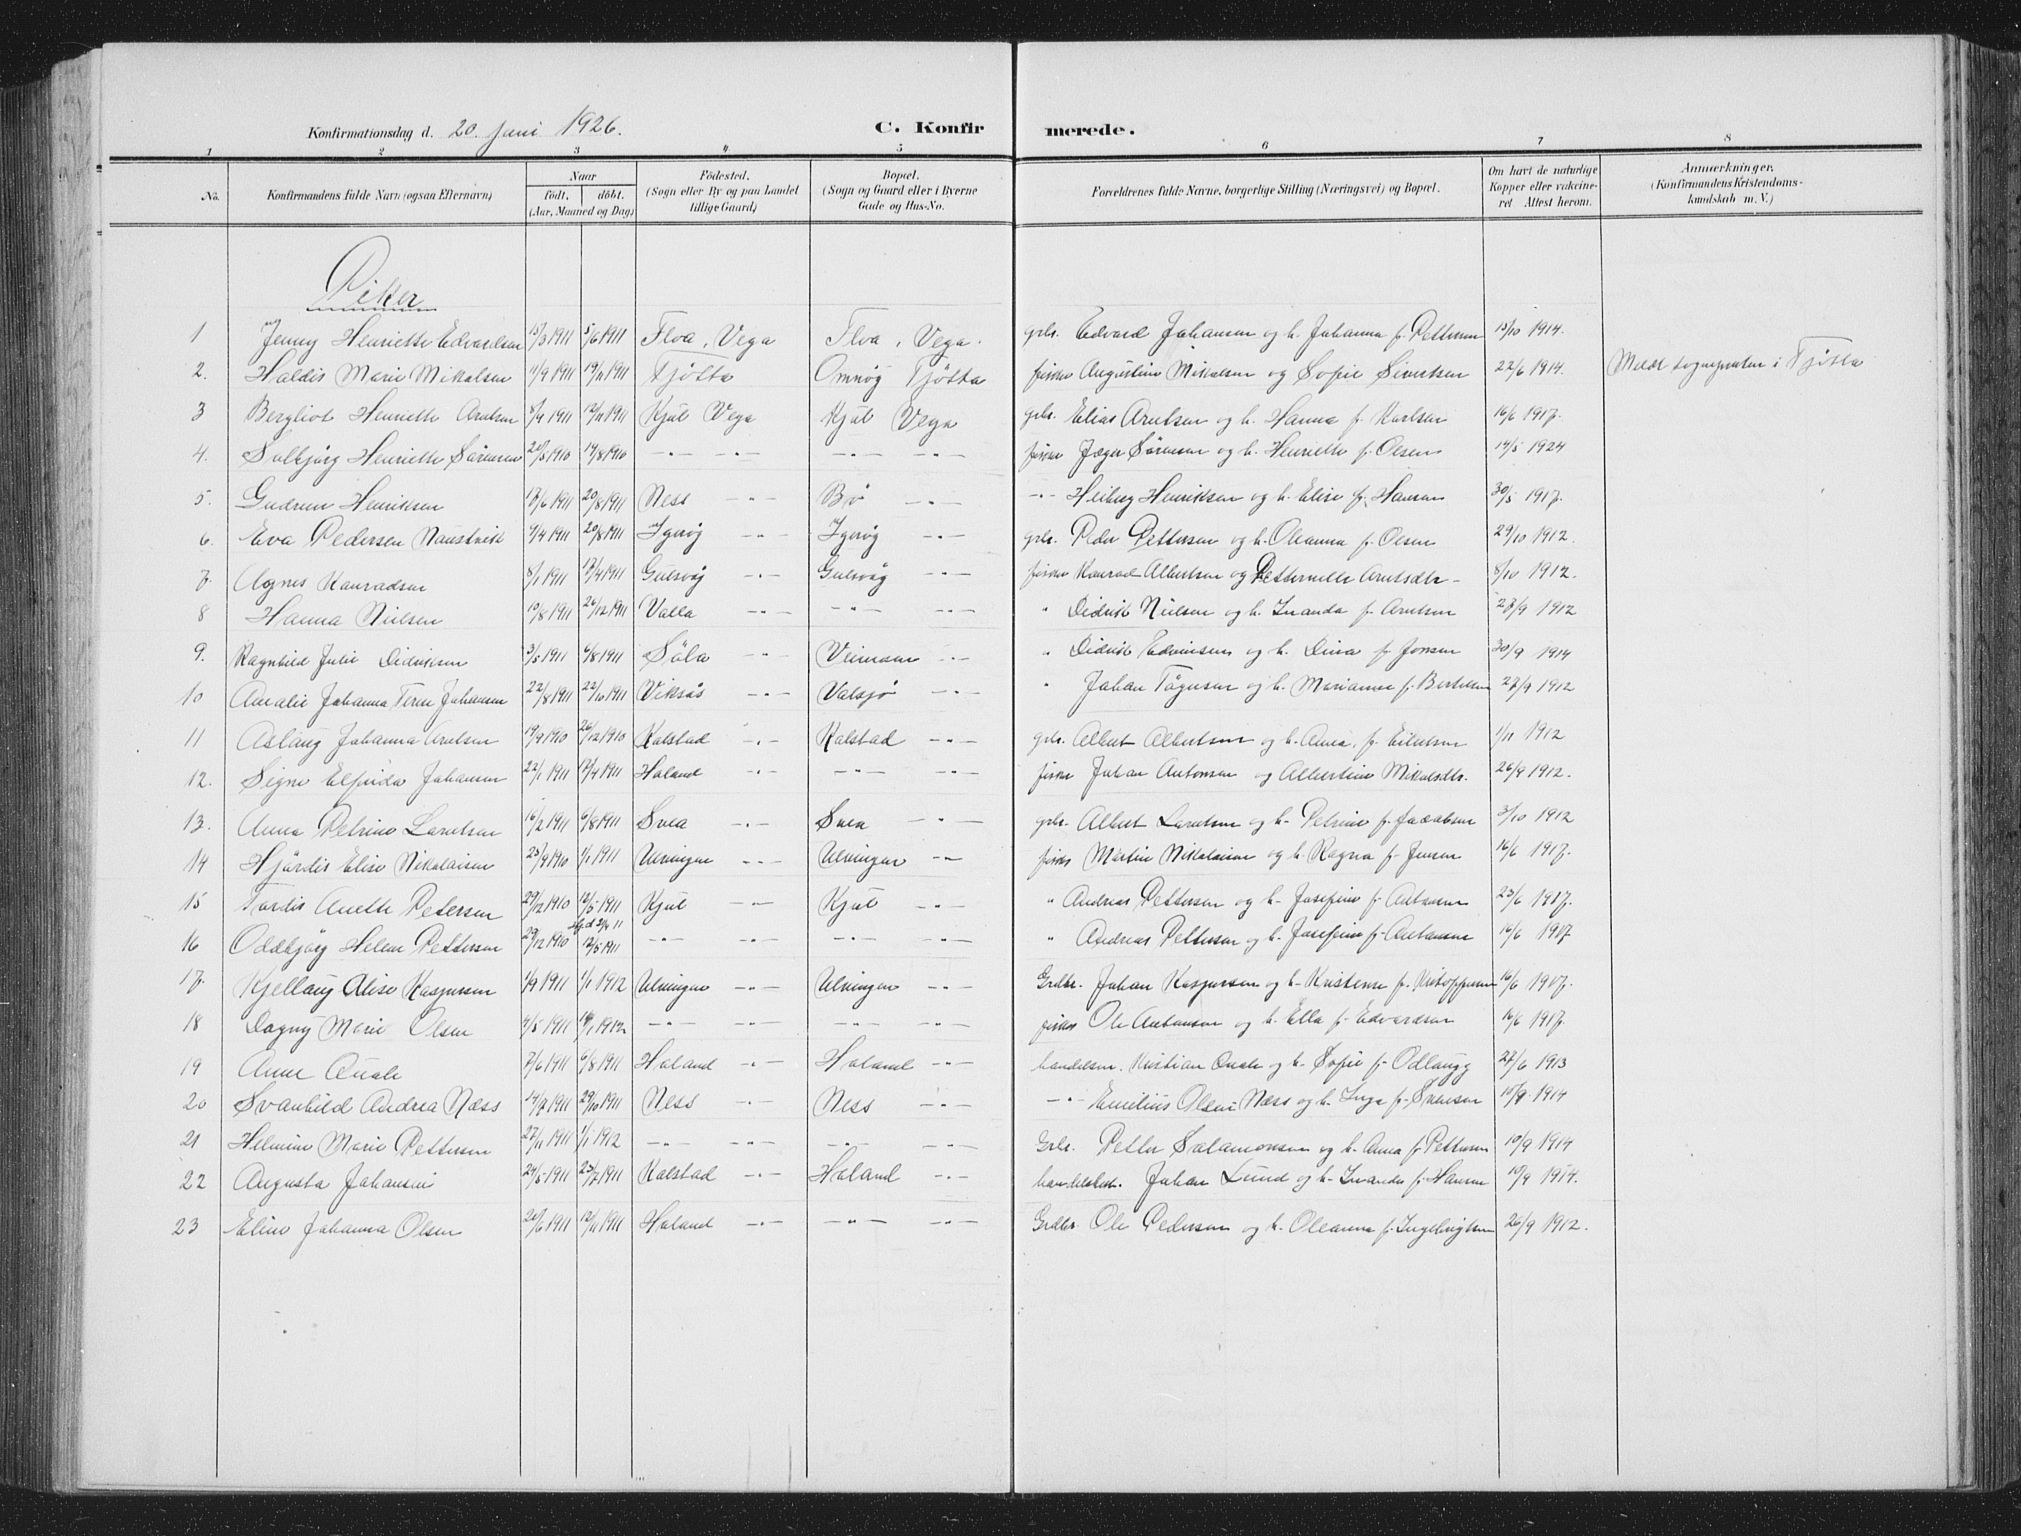 Konfirmationsdag d. 20. juni 1926. C. Konfirmerede.
1 2 3 4 5 6 7 8
No. Konfirmandens fulde Navn (ogsaa Efternavn) Naar født, døbt. (Aar, Maaned og Dag) Fødested. (Sogn eller By og paa Landet tillige Gaard) Bopæl. (Sogn og Gaard eller i Byerne Gade og Hus-No. Forældrenes fulde Navne, borgerlige Stilling (Næringsvei) og Bopæl. Om havt de naturlige Kopper eller vakcineret. Attest herom. Anmærkninger. (Konfirmandens Kristendomskundskab m. V.)
Piker
1 Jenny Henriette Edvardsen 15/3 1911 5/6 1911 Floa, Vega Floa, Vega. grbr. Edvard Johansen og h. Johanna f. Pettersen 13/10 1914.
2. Haldis Marie Mikalsen 11/9 1911 19/11 1911 Tjøtta Omnøy Tjøtta fisker Augustinus Mikalsen og Sofie Sivertsen 22/6 1914. Meldt sognepresten i Tjøtta
3 Bergliot Henriette Arntsen 8/9 1911 12/11 1911 Kjul Vega Kjul Vega grbr. Elias Arntsen og h. Hanna f. Karlsen 16/6 1917.
4. Solbjørg Henriette Sørensen 20/5 1910 14/8 1910 -"- -"- -"- -"- fisker Jæger Sørensen og h. Henriette f. Olsen 14/5 1924
5. Gudrun Henriksen 17/6 1911 20/8 1911 Ness -"- Bø -"- -"- Heiberg Henriksen og h. Elise f. Hansen 30/5 1917.
6. Eva Pedersen Naustvik 4/4 1911 20/8 1911 Igerøy -"- Igerøy -"- grbr. Peder Pettersen og h. Oleanna f. Olsen 29/10 1912.
7. Agnes Konradsen 8/1 1911 17/4 1911 Gulsvåg -"- Gulsvåg -"- fisker Konrad Albertsen og Petternelle Arntsdtr - 8/10 1912.
8 Hanna Nielsen 10/8 1911 26/12 1911 Valla -"- -"- -"- " Didrik Nielsen og h. Inanda f. Arntsen 27/9 1912
9. Ragnhild Julie Didriksen 3/5 1911 6/8 1911 Søla -"- -"- " Didrik Edvinsen og h. Dina f. Jonsen 30/9 1914
10 Amalie Johanna Johansen 22/8 1911 22/10 1911 Viksås -"- Valsjø -"- " Johan Tøgersen og h. Marianne f. Bertelsen 27/9 1912
11 Aslaug Johanna Arntsen 19/9 1910 26/12 1910 Kalstad -"- Kalstad -"- grbr. Albert Albertsen og h. Anna f. Eilertsen 1/11 1912
12. Signe Elfrida Johansen 22/1 1911 17/4 1911 Holand -"- -"- -"- fisker Johan Antonsen og Albertine Mikalsdtr. 26/9 1912.
13. Anna Petrine Larntsen 16/2 1911 6/8 1911 Svea -"- Svea -"- grbr. Albert Larntsen og h. Petrine f. Jacobsen 3/10 1912
14 Hjørdis Elise Nikolaisen 23/9 1910 1/1 1911 Ulvingen -"- Ulvingen -"- fisker Martin Nikolaisen og h. Ragna f. Jensen 16/6 1917.
15 Tordis Anette Petersen 29/12 1910 12/5 1911 Kjul -"- Kjul -"- " Andreas Pettersen og h. Josefine f. Antonsen 23/6 1917.
16 Oddbjørg Helene Pettersen 29/12 1910 12/5 1911 -"- -"- -"- -"- " Andreas Pettersen og h. Josefine f. Antonsen 16/6 1917
17. Kjellaug Alise Kaspersen 1/9 1911 1/1 1912 Ulvingen -"- Ulvingen -"- Grdbr. Johan Kaspersen og h. Kristense f. Kristoffersen 16/6 1917.
18 Dagny Marie Olsen 4/5 1911 1912 -"- -"- -"- -"- fisker Ole Antonsen og h. Ella f. Edvardsen 16/6 1917.
19 Anne Quale 7/6 1911 6/8 1911 Holand -"- Holand -"- handelsm. Kristian Quale og h. Sofie f. Odlaugg 27/6 1913
20 Svanhild Andrea Næss 14/7 1911 29/10 1911 Ness -"- Ness -"- -"- Emilius Olsen Næss og h. Inga f. Svensen 10/9 1914
21 Helmine Marie Pettersen 27/11 1911 1/1 1912 -"- -"- -"- -"- Grbr. Petter Salamonsen og h. Anna f. Pettersen 10/9 1914
22 Augusta Johansen 24/5 1911 23/7 1911 Kalstad -"- Holand -"- handelsbest. Johan Lund og h. Inanda f. Hansen 10/9 1914.
23 Eline Johanna Olsen 20/6 1911 12/11 1911 Holand -"- -"- -"- Grdbr. Ole Pedersen og h. Oleanna f. Ingebrigtsen 26/9 1912.